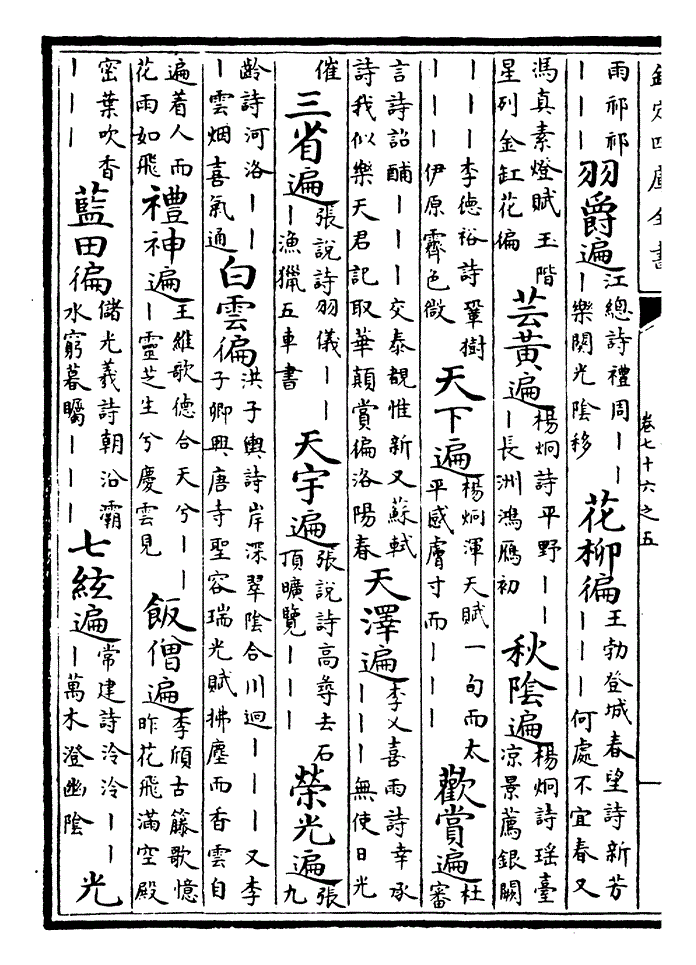 欽定四庫全書 卷七十六之五
雨祁祁｜｜｜ 羽爵遍 江總詩禮周｜｜｜樂闋光陰移 花柳徧 王勃登城春望詩新芳｜｜｜何處不宜春又
馮真素燈賦玉階星列金缸花徧 芸黃遍 楊炯詩平野｜｜｜長洲鴻鴈初 秋陰遍 楊炯詩瑤臺涼景薦銀闕
｜｜｜李德裕詩鞏樹｜｜｜伊原霽色微 天下遍 楊炯渾天賦一句而太平感膚寸而｜｜｜ 歡賞遍 杜審
言詩詔酺｜｜｜交泰覩惟新又蘇軾詩我似樂天君記取華顛賞徧洛陽春 天澤遍 李乂喜雨詩幸承｜｜｜無使日光
催 三省遍 張說詩羽儀｜｜｜漁獵五車書 天宇遍 張說詩高尋去石頂曠覽｜｜｜ 榮光遍 張九
齡詩河洛｜｜｜雲烟喜氣通 白雲徧 洪子輿詩岸深翠陰合川迥｜｜｜又李子卿興唐寺聖容瑞光賦拂塵而香雲自
遍着人而花雨如飛 禮神遍 王維歌德合天兮｜｜｜靈芝生兮慶雲見 飯僧遍 李頎古籐歌憶昨花飛滿空殿
密葉吹香｜｜｜ 藍田徧 儲光義詩朝沿灞水窮暮矚｜｜｜ 七絃遍 常建詩泠泠｜｜｜萬木澄幽陰 光